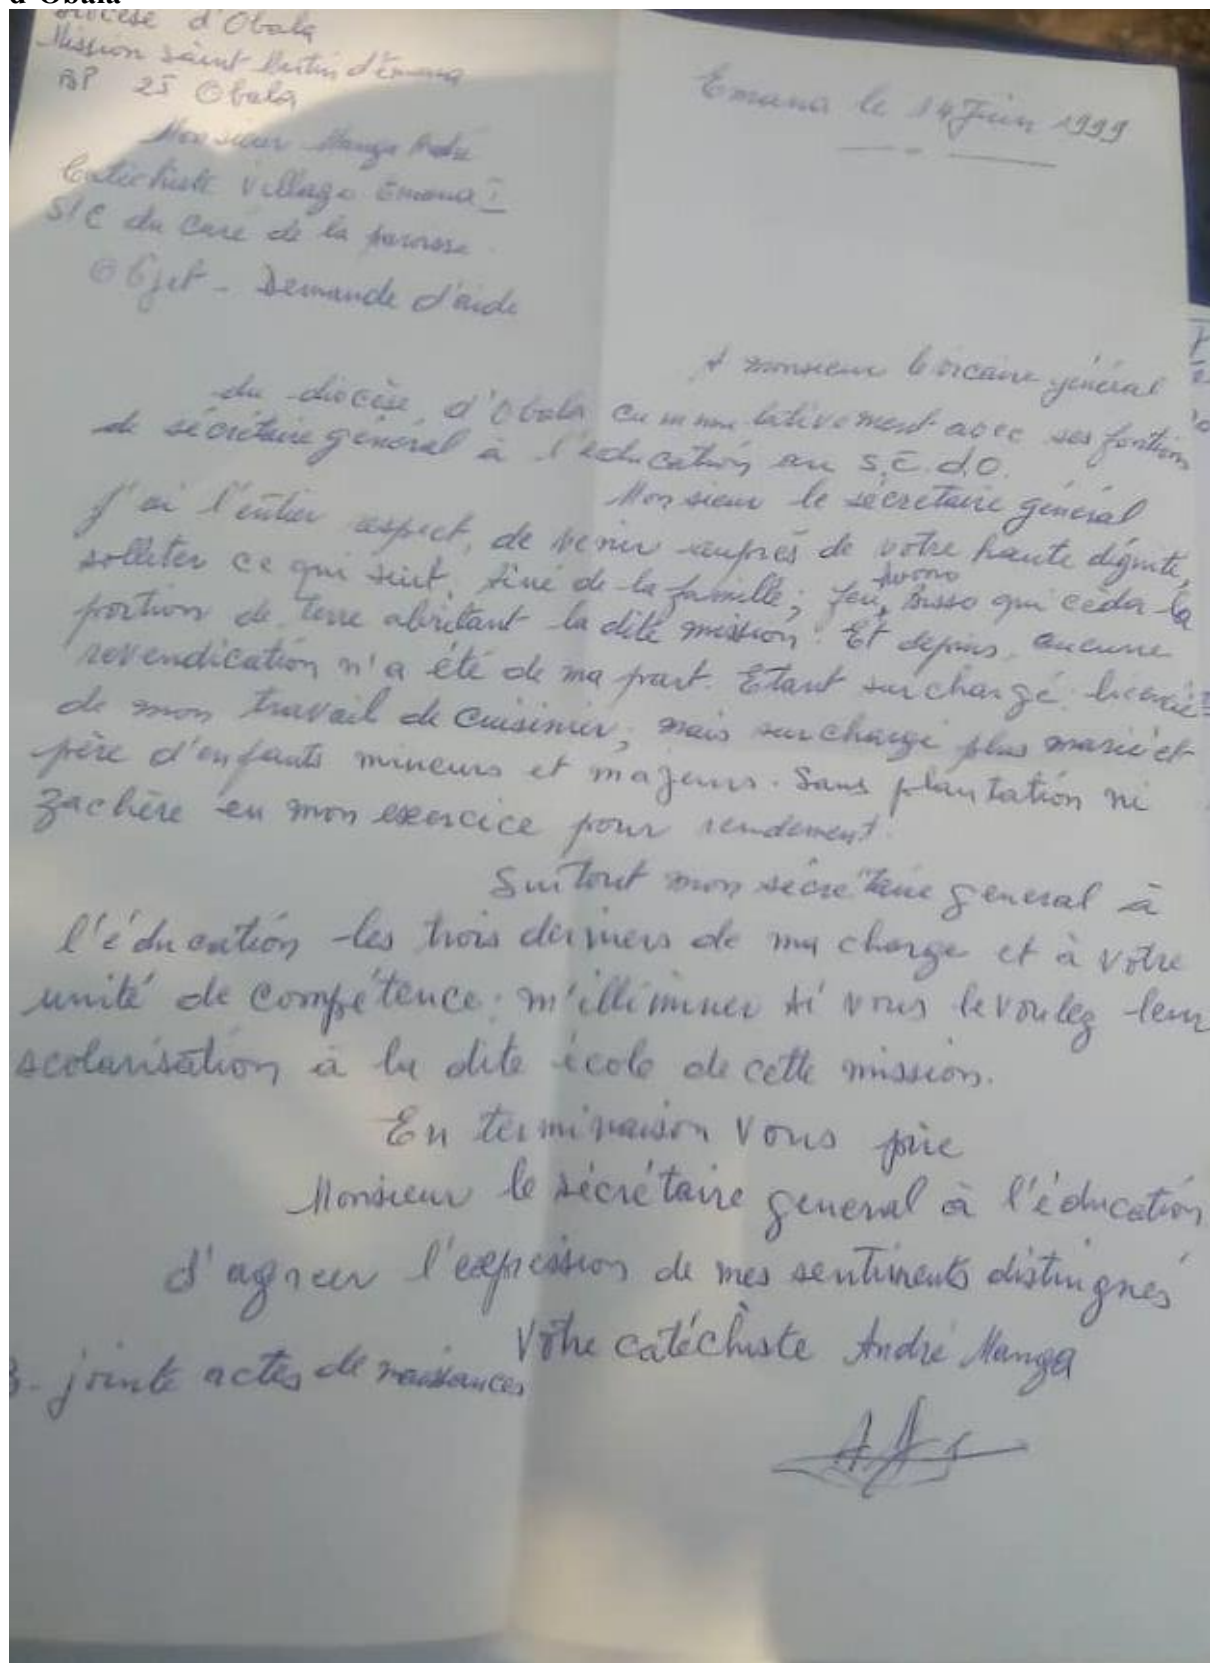 d'Obala
Diocèse d'Obala
Mission saint Martin d'Emana
BP 25 Obala
Emana le 14 Juin 1999
Monsieur Manga André
Catéchiste village Emana I
S/C du Curé de la paroisse.
Objet - Demande d'aide
A monsieur le vicaire général
du diocèse d'Obala cummulativement avec ses fontion
de sécrétaire général à l'éducation au S.E.d.O.
Monsieur le sécrétaire général
J'ai l'entier respect, de venir auprès de votre haute dignité,
solliter ce qui suit. de la famille; feu, Bisso qui céda la
portion de terre abritant la dite mission. Et depuis, aucune
revendication n'a été de ma part. Etant surchargé. licencié
de mon travail de cuisinier; mais surchargé plus marié et
père d'enfants mineurs et majeurs. Sans plantation ni
zachère en mon exercice pour rendement.
Surtout mon sécrétaire general à
l'éducation les trois derniers de ma charge et à votre
unité de compétence; m'illiminer si vous le voulez leur
scolarisation à la dite école de cette mission.
En terminaison vous prie
Monsieur le sécrétaire general à l'éducation
d'agreer l'expression de mes sentiments distingués
Votre catéchiste André Manga
- jointe actes de naissances